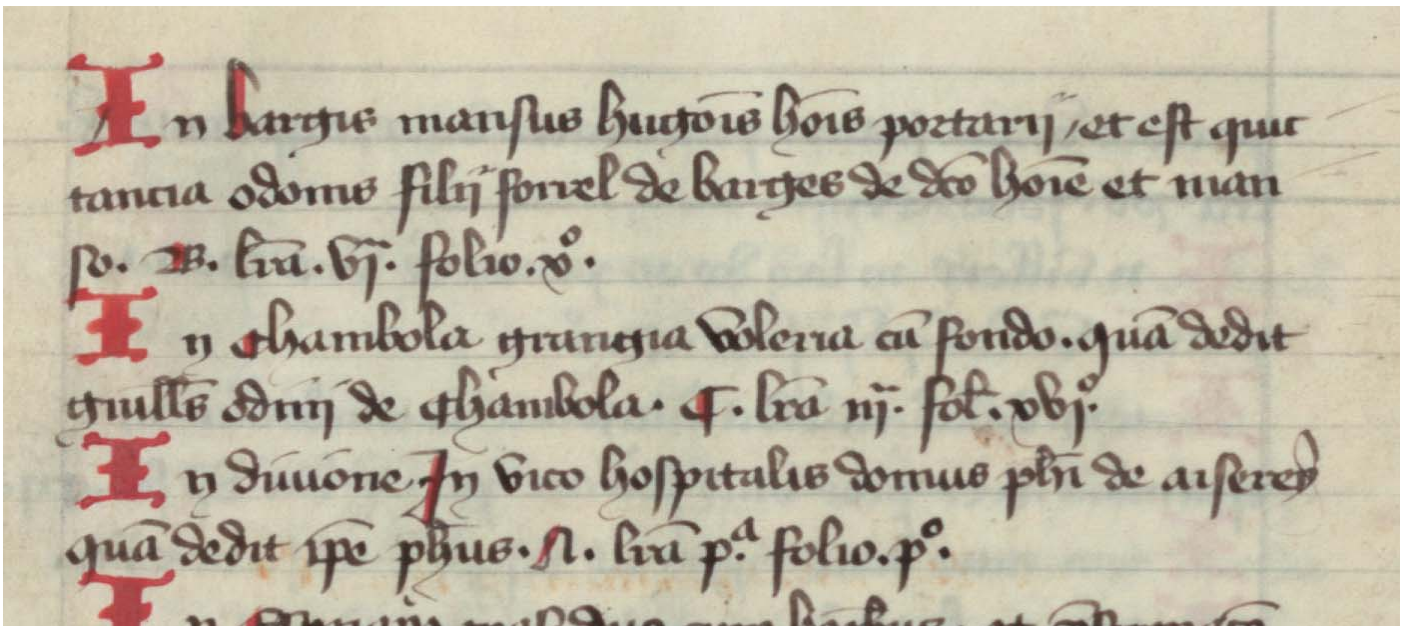 In bargis mansus hugōis hōis portarij, et est quit
tancia odonis filij sorrel de barges de dco hoīe et man
so. B. lrā. vj. folio. xº.
In Chambola grangia voleria cū fondo. quā dedit
guillꝭs odini de Chambola. C. lrā iij. fol. xvjº.
In divione In vico hospitalis domus phi de aiserey
quā dedit ipē phus. A. lrā p.ª folio. pº.